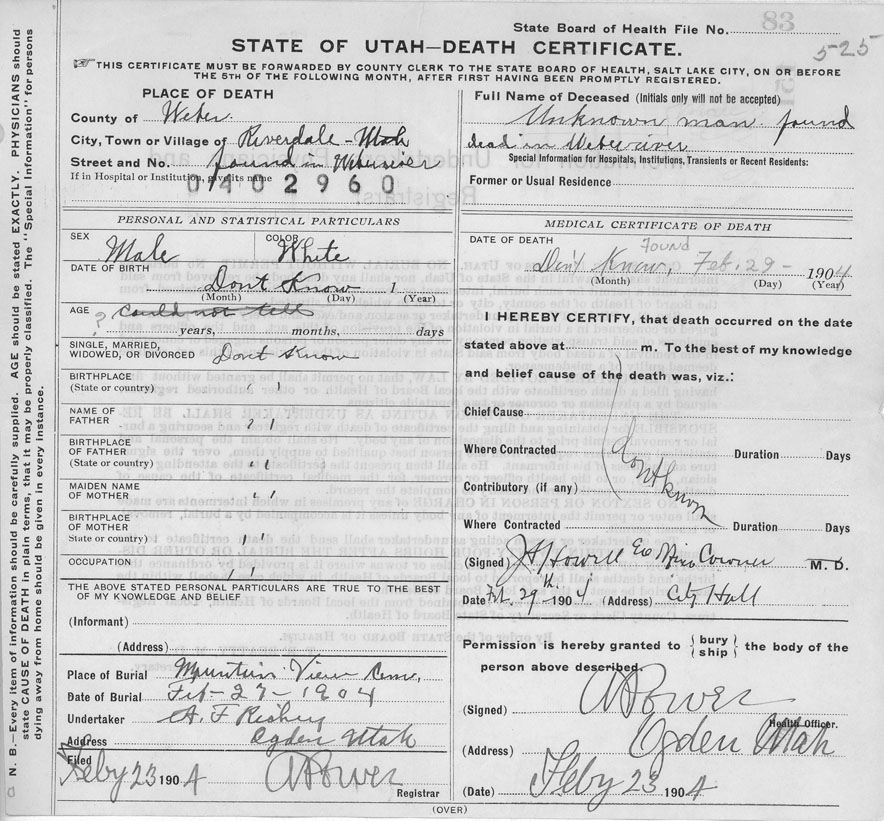 State Board of Health File No. 83
525
STATE OF UTAH—DEATH CERTIFICATE.
THIS CERTIFICATE MUST BE FORWARDED BY COUNTY CLERK TO THE STATE BOARD OF HEALTH, SALT LAKE CITY, ON OR BEFORE
THE 5TH OF THE FOLLOWING MONTH, AFTER FIRST HAVING BEEN PROMPTLY REGISTERED.
N. B.—Every item of information should be carefully supplied. AGE should be stated EXACTLY. PHYSICIANS should
state CAUSE OF DEATH in plain terms, that it may be properly classified. The "Special Information" for persons
dying away from home should be given in every instance.
PLACE OF DEATH
County of Weber
City, Town or Village of Riverdale - Utah
Street and No. found in Weber river
If in Hospital or Institution, give its name
0402960
PERSONAL AND STATISTICAL PARTICULARS
SEX Male COLOR White
DATE OF BIRTH Dont Know 1
(Month) (Day) (Year)
AGE could not tell
? years, months, days
SINGLE, MARRIED,
WIDOWED, OR DIVORCED Dont Know
BIRTHPLACE
(State or country) " "
NAME OF
FATHER " "
BIRTHPLACE
OF FATHER
(State or country) " "
MAIDEN NAME
OF MOTHER " "
BIRTHPLACE
OF MOTHER
State or country) " "
OCCUPATION " "
THE ABOVE STATED PERSONAL PARTICULARS ARE TRUE TO THE BEST
OF MY KNOWLEDGE AND BELIEF
(Informant)
(Address)
Place of Burial Mountain View Cem,
Date of Burial Feb - 27 - 1904
Undertaker A. F.
Address Ogden Utah
Filed
Feby 23 1904
Registrar
Full Name of Deceased (Initials only will not be accepted)
Unknown man found
dead in Weber river
Special Information for Hospitals, Institutions, Transients or Recent Residents:
Former or Usual Residence
MEDICAL CERTIFICATE OF DEATH
DATE OF DEATH Found
Don't Know, Feb. 29 - 1904
(Month) (Day) (Year)
I HEREBY CERTIFY, that death occurred on the date
stated above at m. To the best of my knowledge
and belief cause of the death was, viz.:
Chief Cause
Where Contracted Duration Days
Contributory (if any)
dont know
Where Contracted Duration Days
(Signed) J H Howell Coroner M. D.
Date Feb. 29th 1904 (Address) City Hall
Permission is hereby granted to { bury / ship } the body of the
person above described.
(Signed)
Health Officer.
(Address) Ogden Utah
(Date) Feby 23 1904
(OVER)